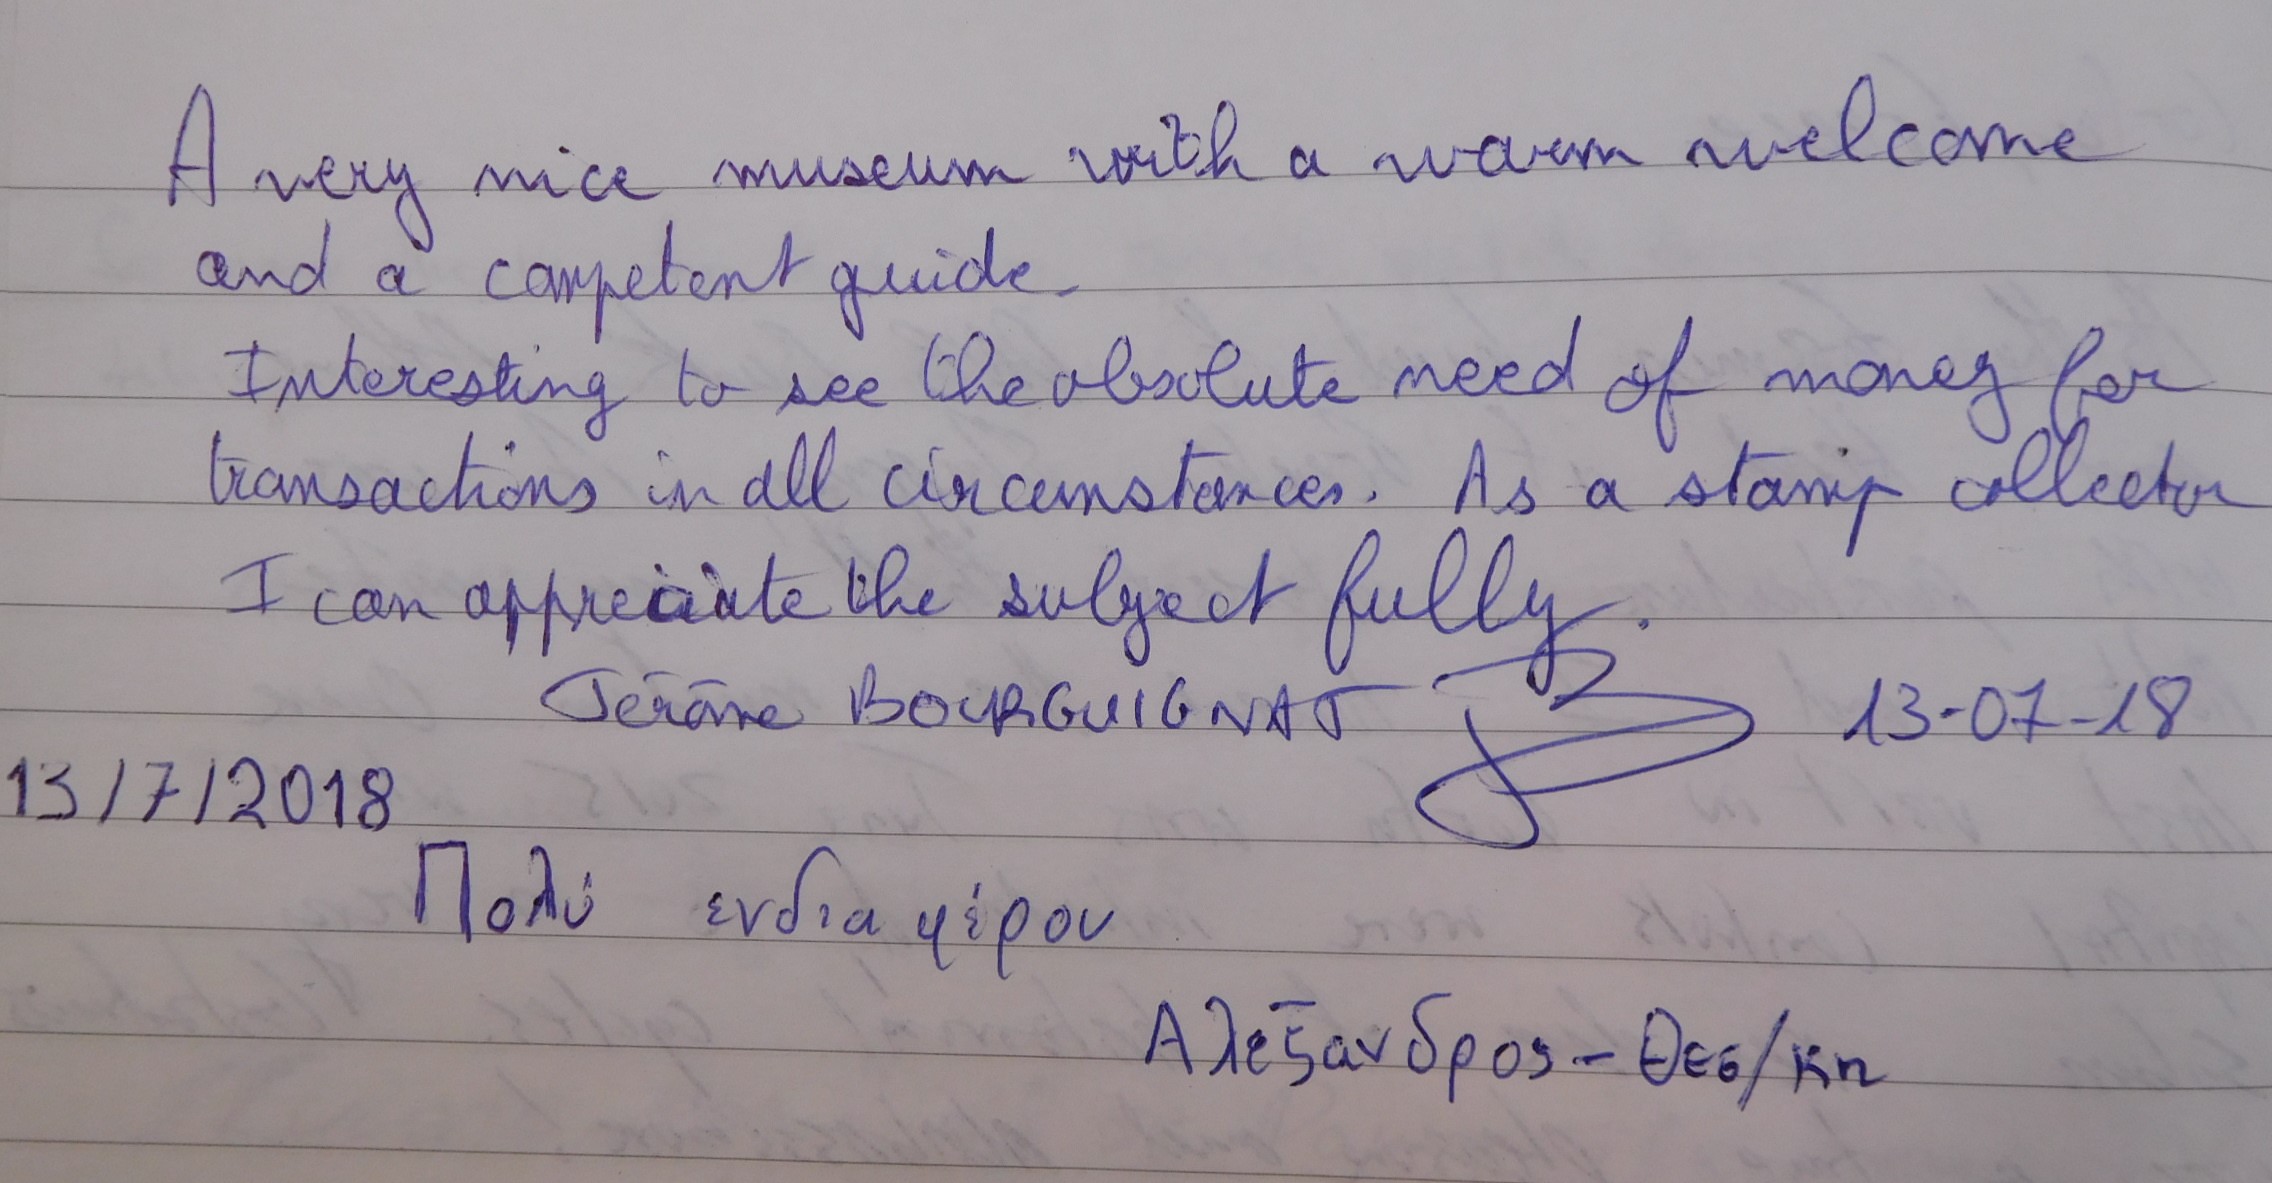 A very nice museum with a warm welcome
and a competent guide.
Interesting to see the absolute need of money for
transactions in all circumstances. As a stamp collector
I can appreciate the subject fully.
Jérôme BOURGUIGNAT 13-07-18
13/7/2018
Πολύ ενδιαφέρον
Αλέξανδρος - Θεσ/κη